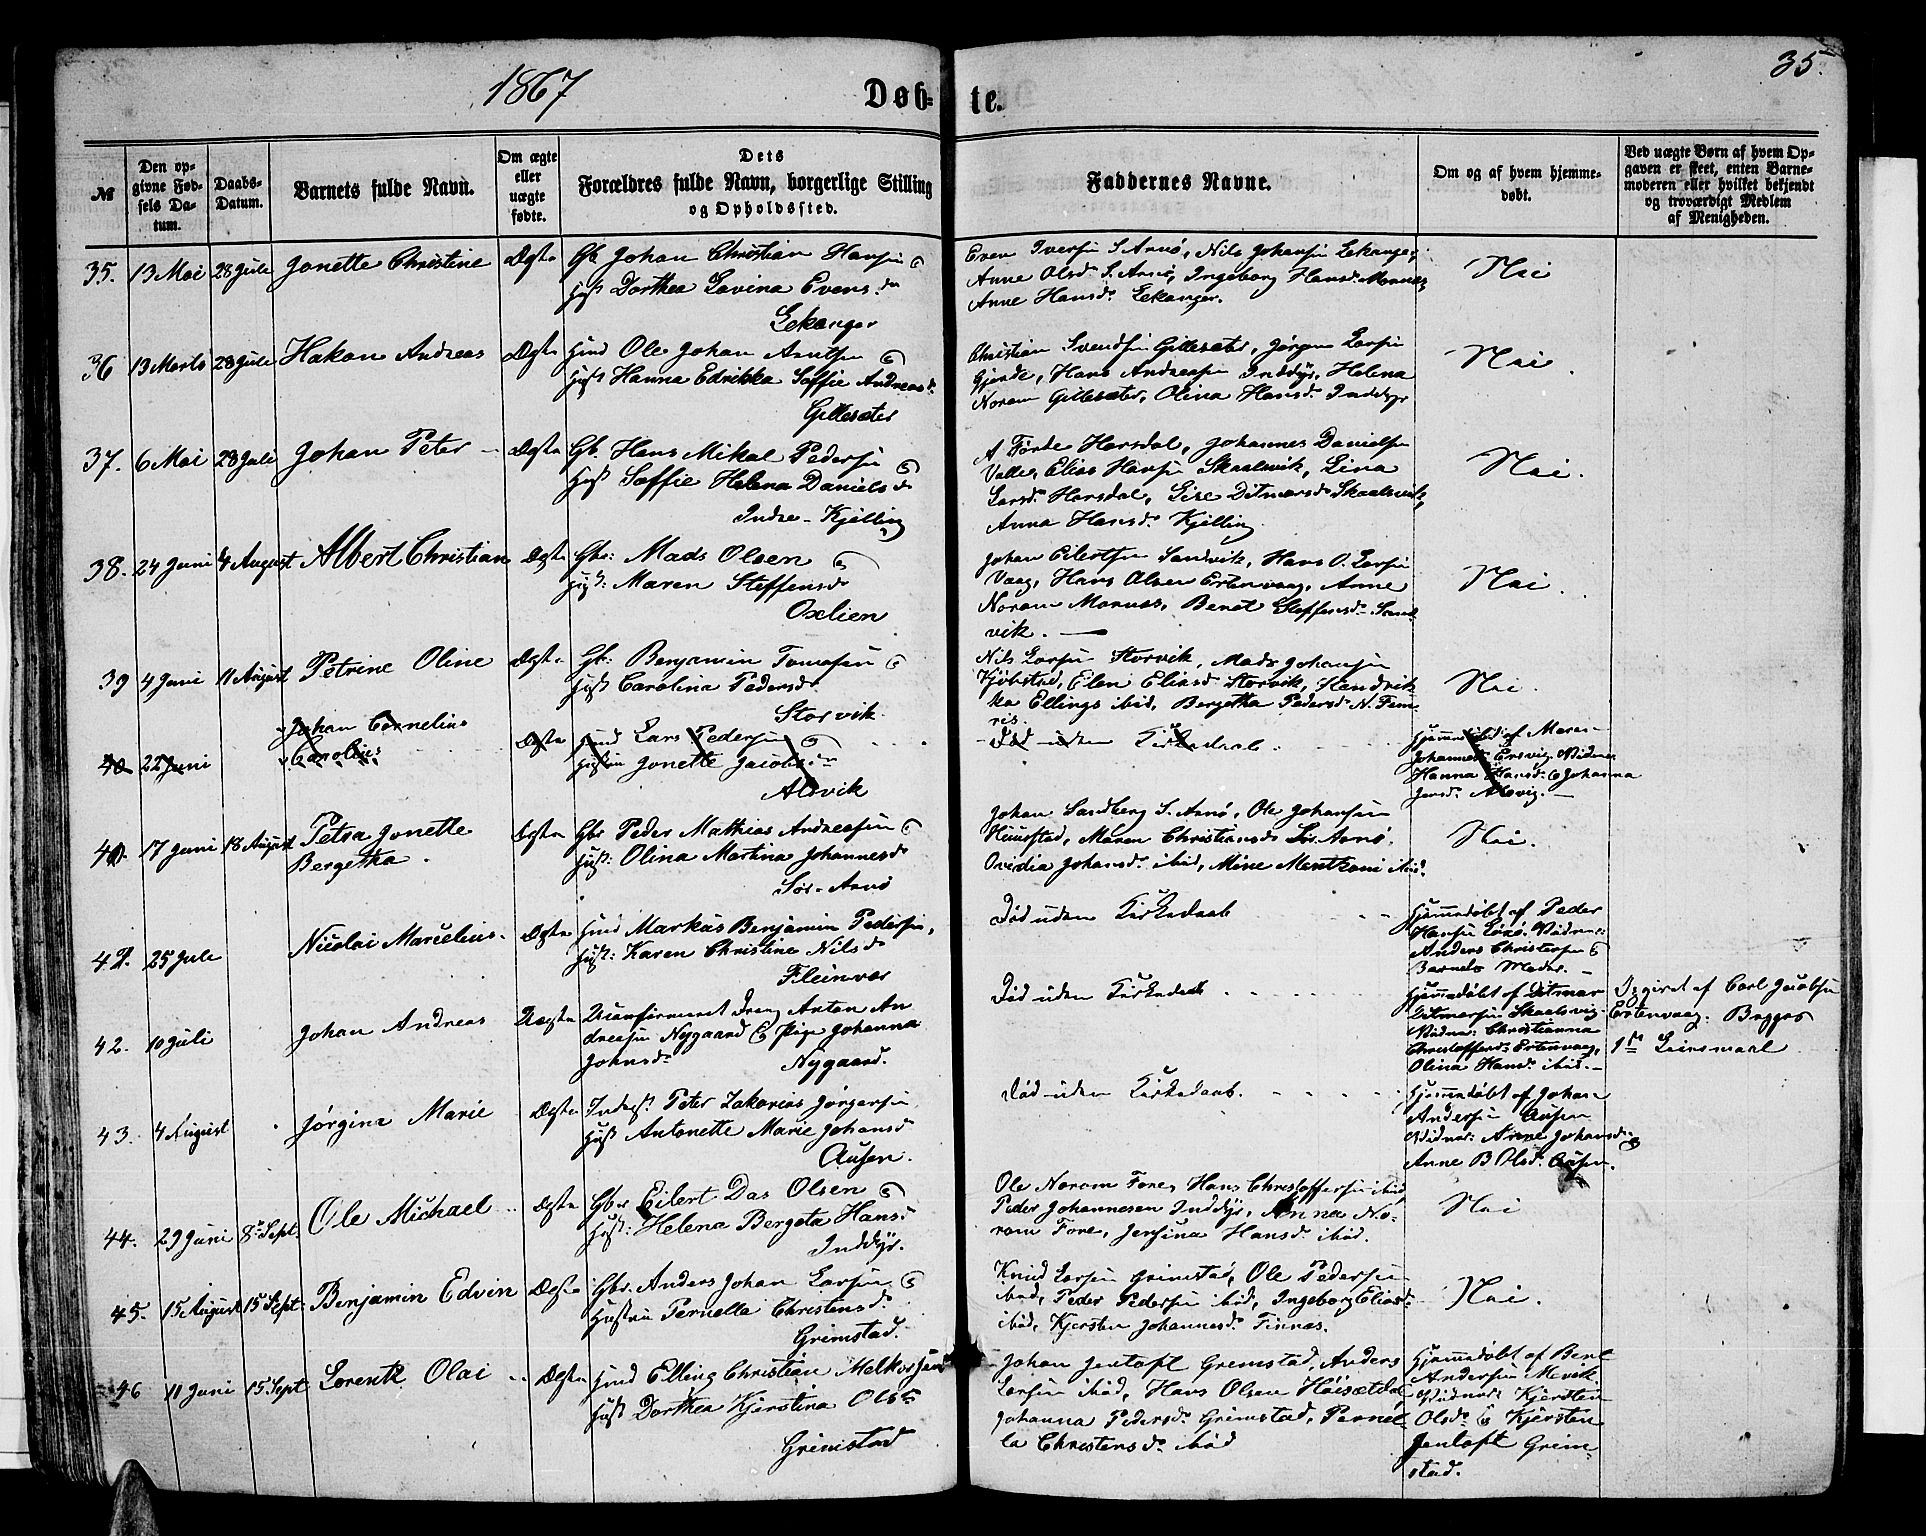 1867
Døb-
te.
35.
№
Den op-
givne Fød-
sels Da-
tum.
Daabs-
Datum.
Barnets fulde Navn.
Om ægte
eller
uægte
fødte.
Dets
Forældres fulde Navn, borgerlige Stilling
og Opholdssted.
Faddernes Navne.
Om og af hvem hjemme-
døbt.
Ved uægte Børn af hvem Op-
gaven er skeet, enten Barne-
moderen eller hvilket bekjendt
og troværdigt Medlem
af Menigheden.
35. 13 Mai 28 Juli Jonette Christine Ægte Gb. Johan Christian Hansen &
Hust Dorthea Lovina Evensd.
Lekanger
Even Iversen S. Arnø, Nils Johansen Lekanger,
Anne Olsd. S. Arnø, Ingeborg Hansd. Mornes,
Anne Hansd. Lekanger.
Nei
36 13 Marts 28 Juli Hakon Andreas Ægte Hmd Ole Johan Arntsen &
Hust Hanna Edrikka Soffie Andreasd.
Gillesæter
Christian Svendsen Gillesæter, Jørgen Larsen
Gjerde, Hans Andreasen Inddyr, Helena
Noram Gillesæter, Olina Hansd. Inddyr
Nei.
37. 6 Mai 28 Juli Johan Peter Ægte Gb. Hans Mikal Pedersen &
Hust Soffie Helena Danielsd.
Indre-Kjelling
A Førde Horsdal, Johannes Danielsen
Valle, Elias Hansen Skaalsvik, Lina
Larsd. Horsdal, Lise Ditmarsd. Skaalsvik,
Anna Hansd. Kjelling.
Nei.
38. 24 Juni 4 August Albert Christian Ægte Gbr: Mads Olsen &
Hust: Maren Steffensd
Oxlien
Johan Eilertsen Sandvik, Hans O. Larsen
Vaag, Hans Olsen Ertenvaag, Anne
Noram Mornes, Benet Steffensd. Sand-
vik.
Nei.
39 4 Juni 11 August Petrine Oline Ægte Gbr: Benjamin Tomasen &
Hust Carolina Pedersd.
Storvik
Nils Larsen Storvik, Mads Johansen
Kjøbstad, Elen Eliasd. Storvik, Hendrik-
ka Ellings ibid, Bergetha Pedersd. N. Fem-
ris.
Nei.
40 22 Juni Johan Cornelius
Carolius Ægte Hmd Lars Pedersen &
Hustru Jonette Jacobsd.
Alsvik
Død uden Kirkedaab.
Hjemmedøbt af Maren
Johannesd. Ersvig. Vidner
Hanna Hansd. & Johanna
Jensd. Alsvig.
40. 17 Juni 18 August Petra Jonette
Bergetha. Ægte Gbr Peder Mathias Andreasen &
Hust: Olina Martina Johannesd
Sør-Arnø
Johan Sandberg S. Arnø, Ole Johansen
Huustad, Maren Christiansd. Sør Arnø,
Ovidia Johansd. ibid, Mine Mentzoni ibid.
Nei.
41. 25 Juli Nicolai Marcelius. Ægte Hmd Markus Benjamin Pedersen,
Hust: Karen Christine Nilsd
Fleinvær
Død uden Kirkedaab
Hjemmedøbt af Peder
Hansen Vidner:
Anders Christensen &
Barnets Moder.
42. 10 Juli Johan Andreas Uægte Ukonfirmeret Dreng Anton An-
dreasen Nygaard & Pige Johanna
Johnsd.
Nygaard.
Død uden Kirkedaab
Hjemmedøbt af Ditmar
Ditmarsen Skaalsvig.
Vidner: Christianna
Christoffersd. Ertenvaag,
Olina Hansd. ibid.
Opgivet af Carl Jacobsen
Ertenvaag. Begges
1ste Leiersmaal
43. 4 August Jørgina Marie Ægte Inderst Peter Zakarias Jørgensen
Hust Antonette Marie Johansd
Ausen.
Død uden Kirkedaab.
Hjemmedøbt af Johan
Andersen Ausen
Vidner: Anne Johansd. &
Anne B. Olsd. Ausen.
44. 29 Juni 8de Sept. Ole Michael Ægte Gbr Eilert Das Olsen &
Hust: Helena Bergeta Hans.
Inddyr.
Ole Noram Fore, Hans Christoffersen ibid,
Peder Johannesen Inddyr, Anna No-
ram Fore, Jensina Hansd. ibid.
Nei
45. 15 August 15 Sept. Benjamin Edvin Ægte Gbr. Anders Johan Larsen &
Hustru Pernella Christensd.
Grimstad.
Knud Larsen Grimstad, Ole Pedersen
ibid, Peder Pedersen ibid, Ingeborg Eliasd.
ibid, Kjersten Johannesd. Finnæs.
Nei.
46 11 Juni 15 Sept Lorentz Olai Ægte Hmd Elling Christian Melkersen
Hust Dorthea Kjerstina Olsd.
Grimstad
Johan Jentoft Grimstad, Anders
Larsen ibid, Hans Olsen Høisætdal,
Johanna Pedersd. Grimstad, Pernel-
la Christensd. ibid
Hjemmedøbt af Bent
Andersen Mevik
Vidner: Kjersten
Olsd. & Kjersten
Jentoft Grim-
stad.